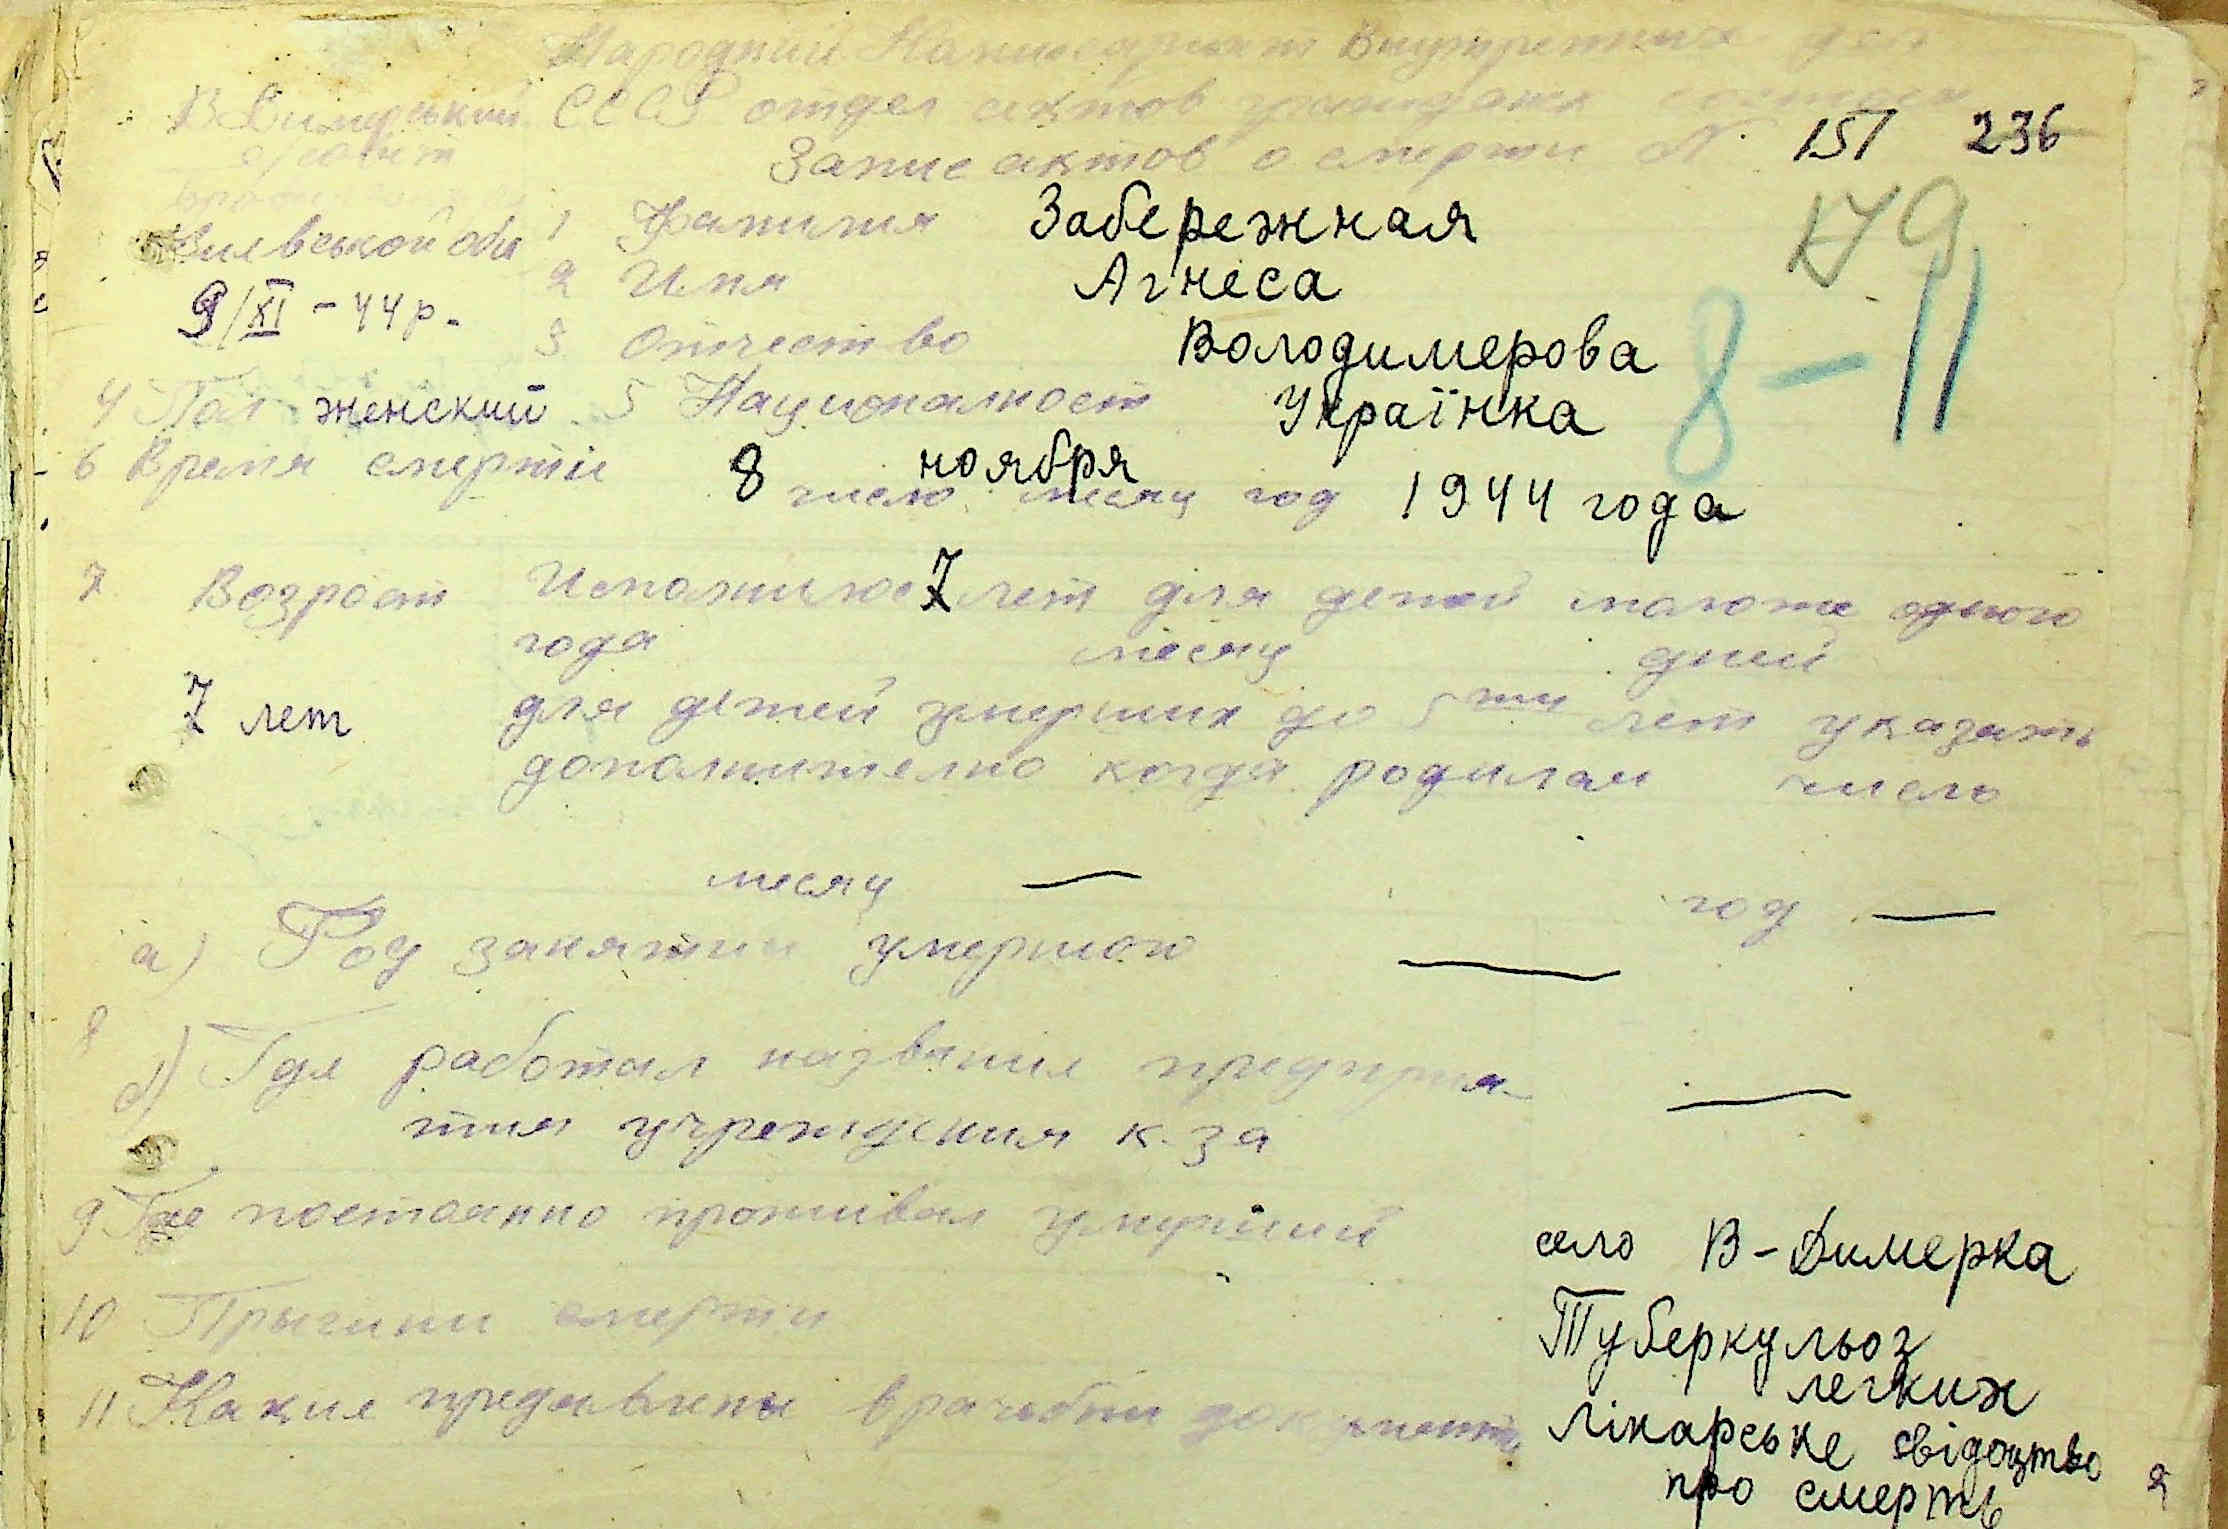 Народний Комисариат Внутрених дел
В Димерський СССР отдел актов граждан состоян
с/совет Запис актов о смерти N 151 236
179
Киевськой обл 1 Фамилия Забережная
2 Имя Агнеса
9/XI - 44 р. 3 Отчество Володимерова
8-11
4 Пол женский 5 Националност Українка
6 Время смерти 8 число ноября месяц год 1944 года
7 Возраст Исполнилос 7 лет для детей моложе одного
года месяц дней
7 лет для детей умерших до 5ти лет указать
дополнително когда родилась число
месяц — год —
а) Род занятии умершого —
8
б) Где работал название предприя
тия учреждения к-за —
9 Где постоянно проживал умерший село В-Димерка
10 Прычини смерти Туберкульоз
легких
11 Какие предявлены врачебни документы Лікарське свідоцтво
про смерть